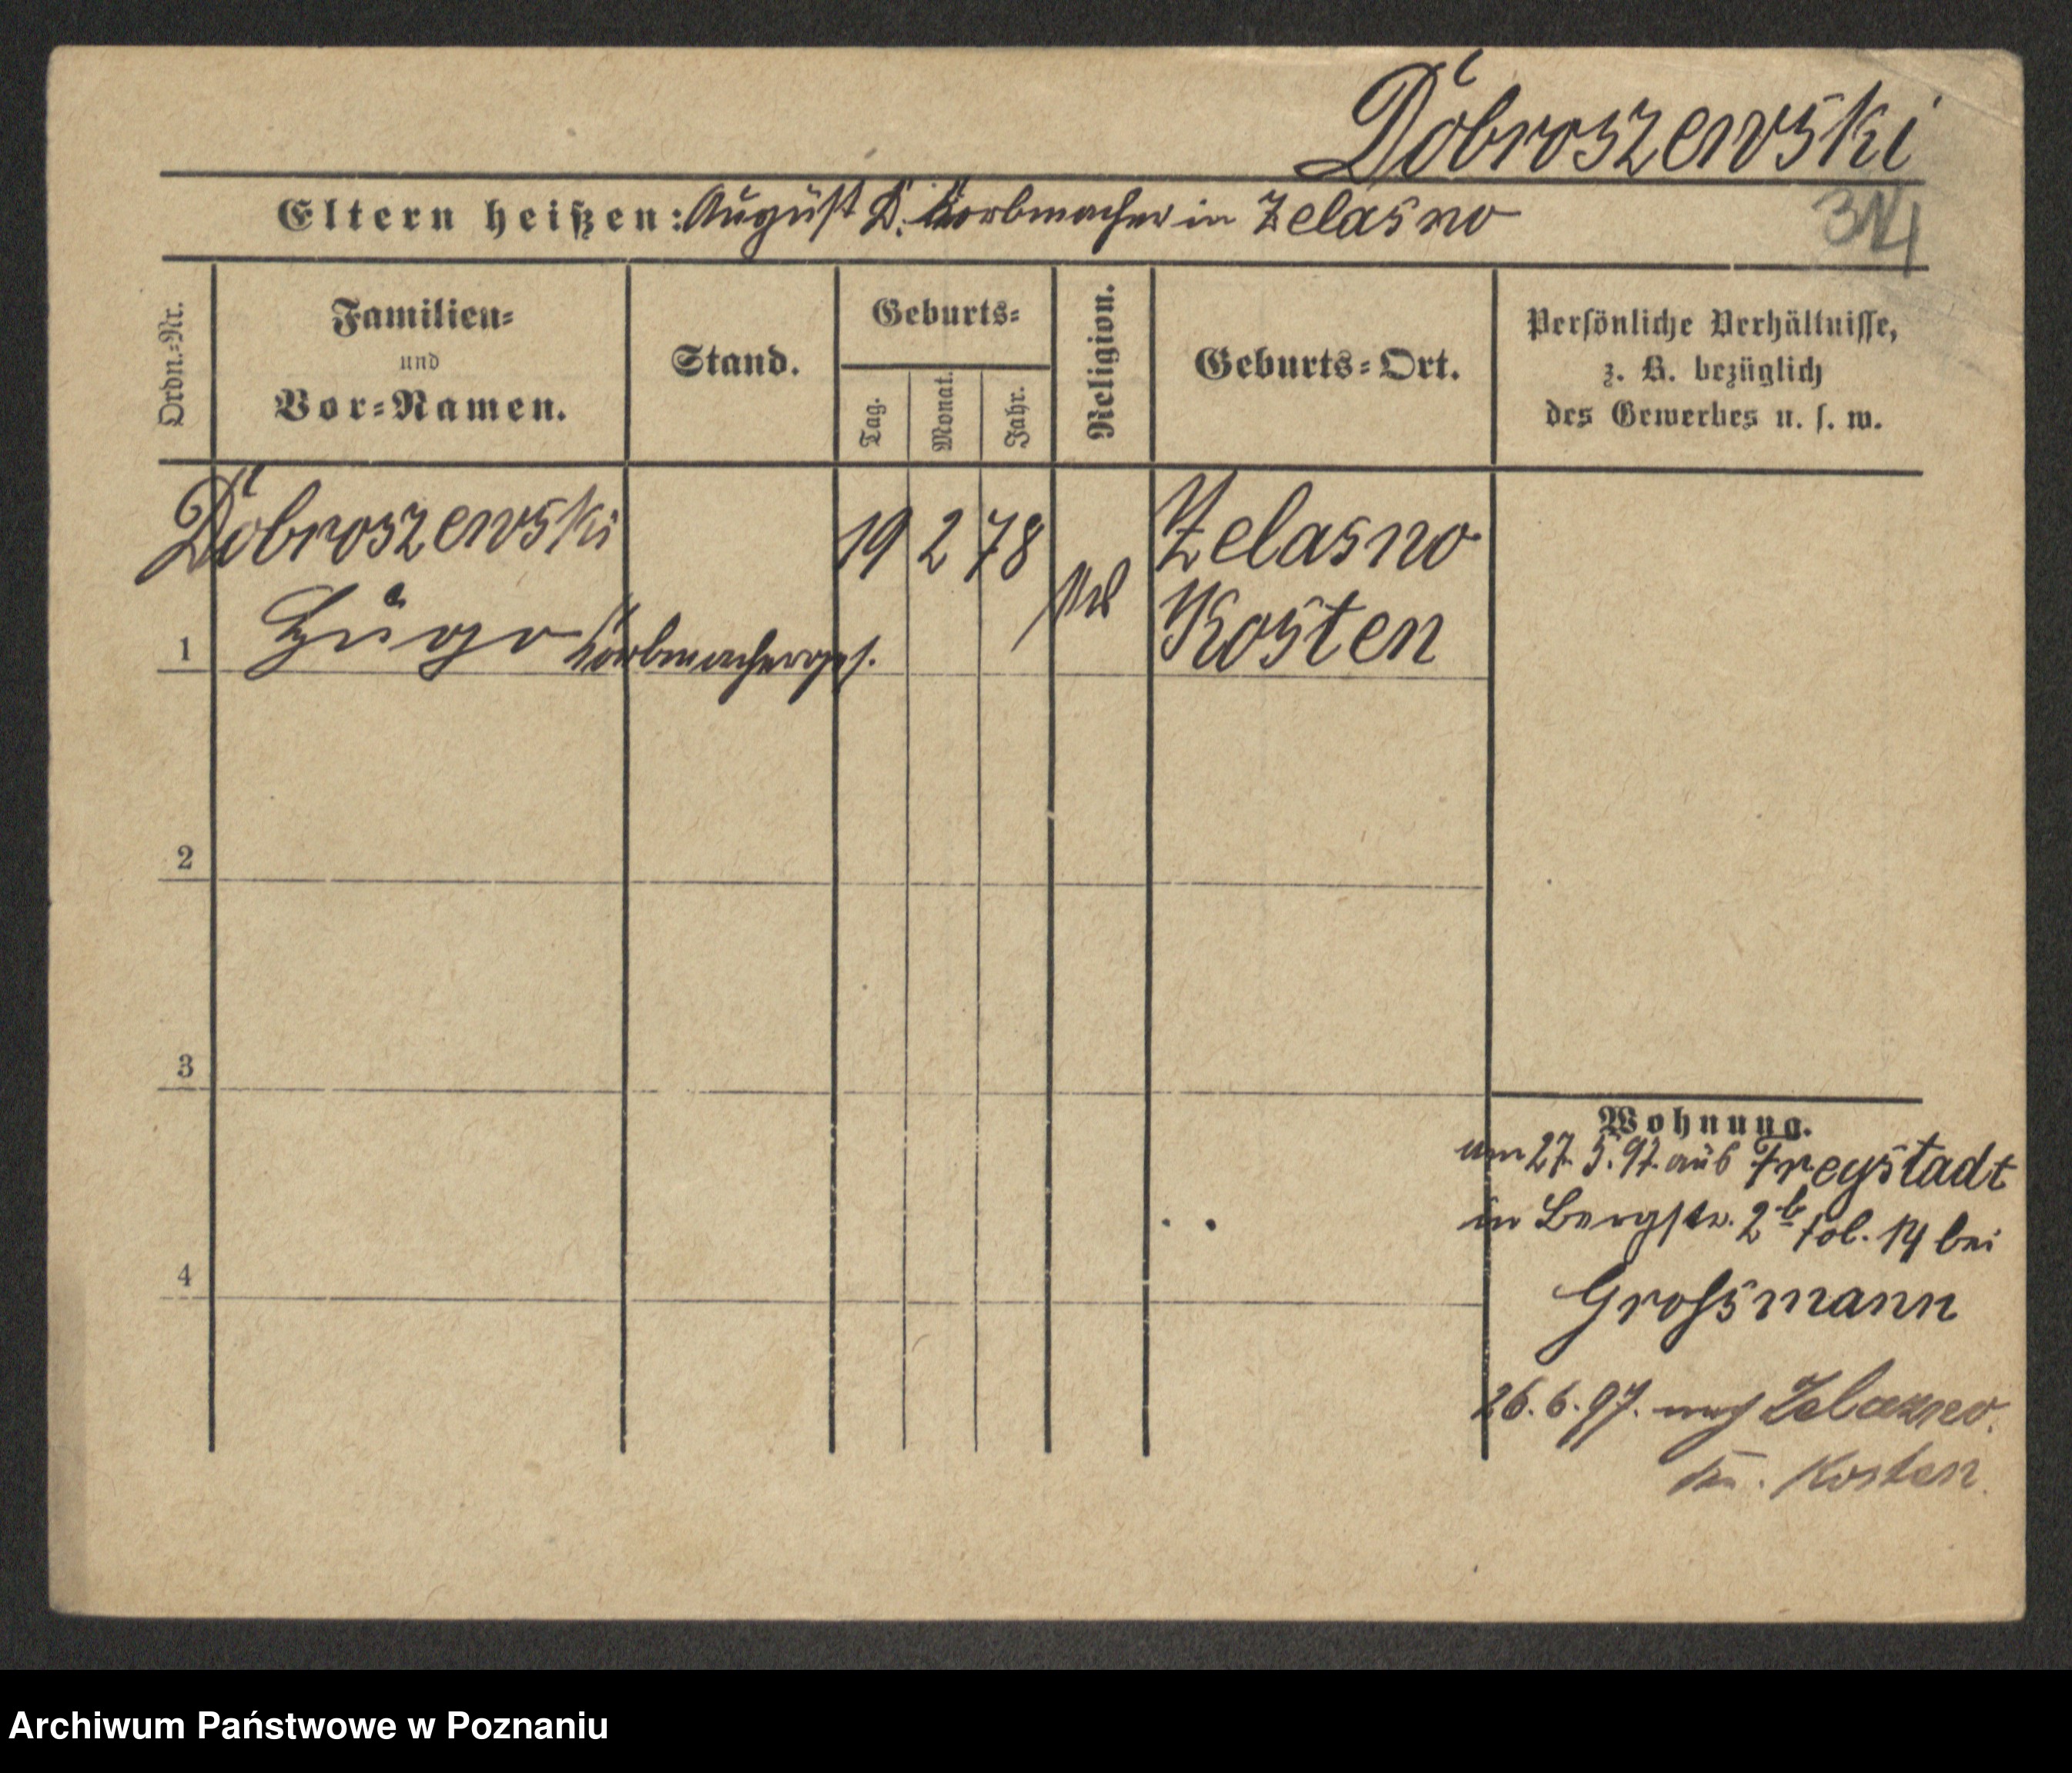 Dobroszewski
Eltern heißen: August D. Korbmacher in Zelasno
Ordn.-Nr.
Familien-
und
Vor-Namen.
Stand.
Geburts-
Tag.
Monat.
Jahr.
Religion.
Geburts-Ort.
Persönliche Verhältnisse,
z. B. bezüglich
des Gewerbes u. s. w.
Dobroszewski 19 2 78 Zelasno
1 Hugo Korbmacherges. Kosten
2
3
4
Wohnung.
am 27.5.97. aus Freystadt
in Bergstr. 2b fol. 14 bei
Grossmann
26.6.97. nach Zelazno.
Kr. Kosten.
Archiwum Państwowe w Poznaniu